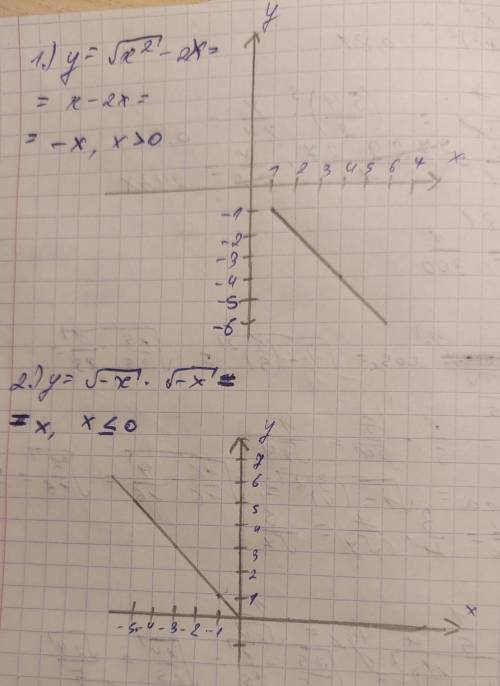 y
1.) y = √x² - 2x =
= x - 2x =
= -x, x > 0
1 2 3 4 5 6 7 x
-1
-2
-3
-4
-5
-6
2.) y = √-x · √-x =
= x, x ≤ 0
y
7
6
5
4
3
2
1
-5 -4 -3 -2 -1
x